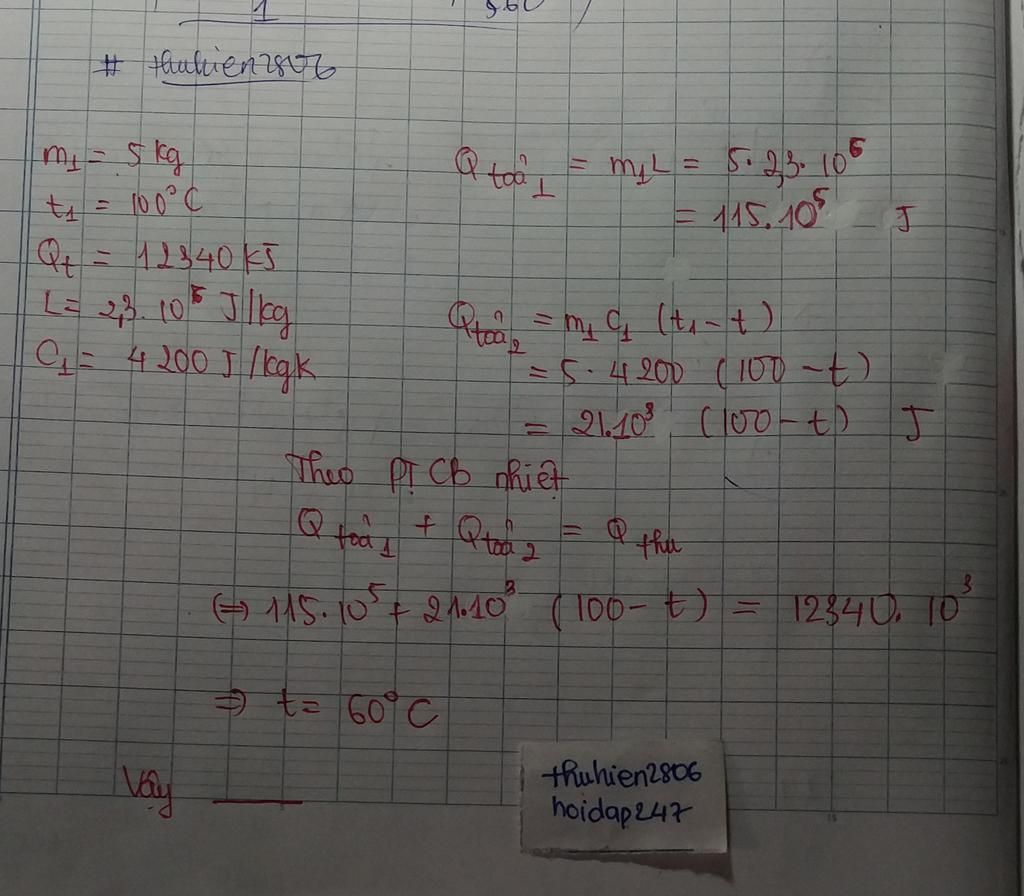 1 3.60 )
# thuhien2806
m₁ = 5 kg
t₁ = 100°C
Qt = 12340 kJ
L = 2,3. 10⁶ J/kg
C₁ = 4200 J/kgk
Q toả₁ = m₁L = 5. 2,3. 10⁶
= 115.10⁵ J
Q toả₂ = m₁ C₁ (t₁ - t)
= 5. 4200 (100 - t)
= 21.10³ (100 - t) J
Theo PT CB nhiệt
Q toả₁ + Q toả₂ = Q thu
(⇒ 115.10⁵ + 21.10³ (100 - t) = 12340. 10³
⇒ t = 60°C
Vậy
thuhien2806
hoidap247